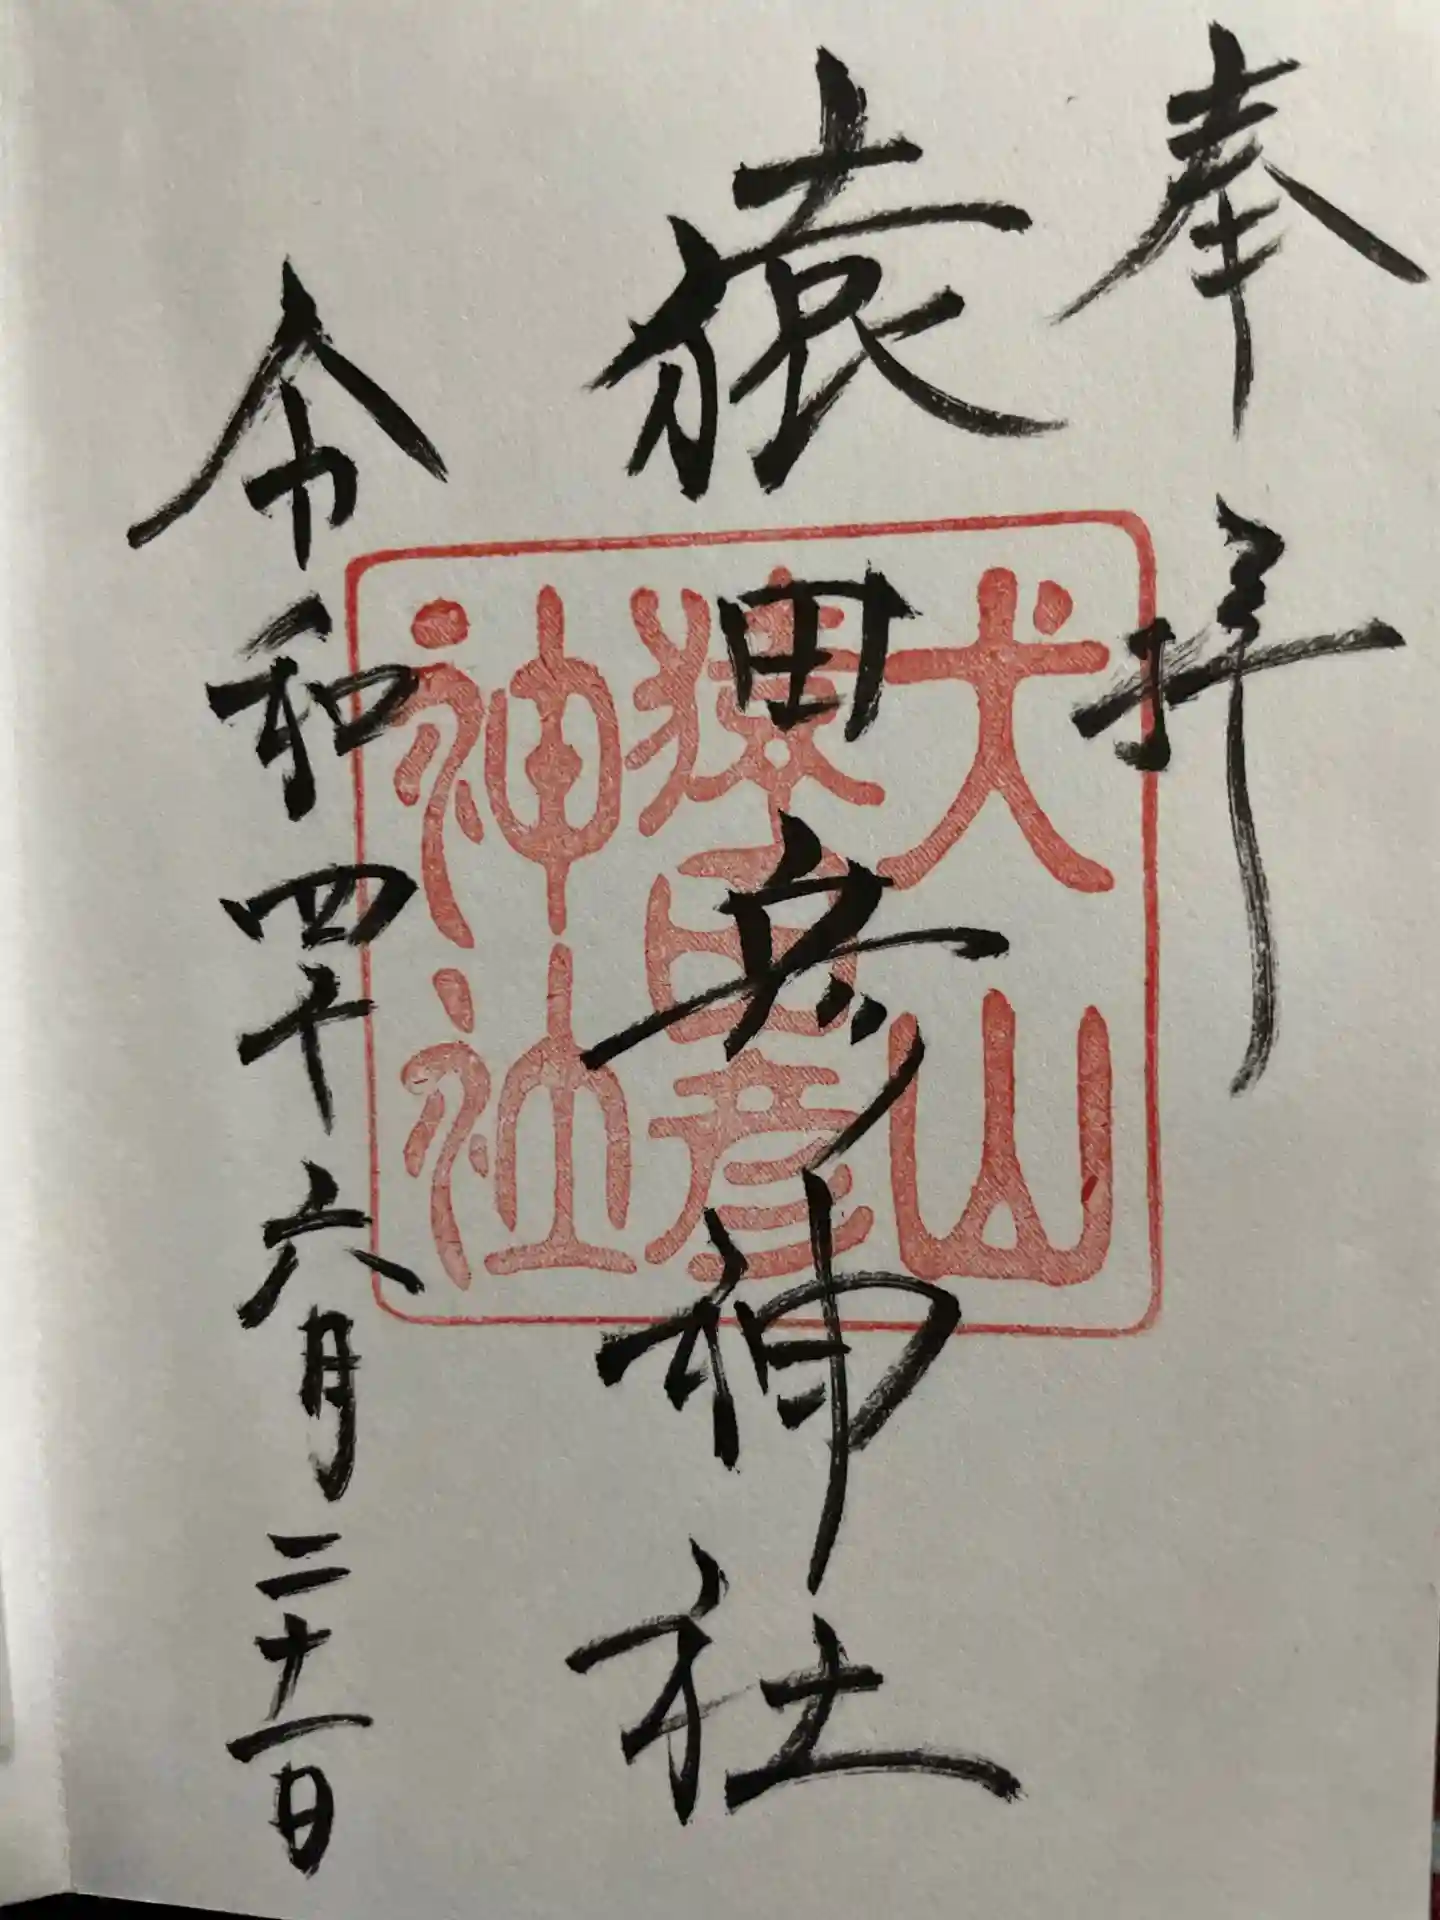 奉拝
猿田彦神社
令和四年六月二十一日
犬山
猿田彦
神社